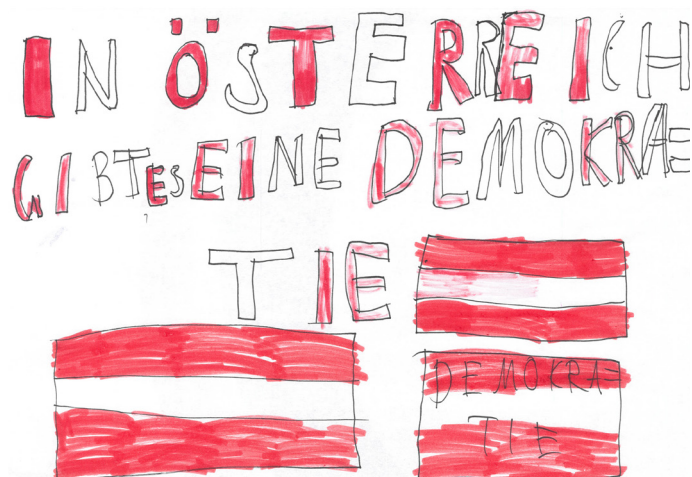 IN ÖSTERREICH
GIBT ES EINE DEMOKRA=
TIE
DEMOKRA=
TIE